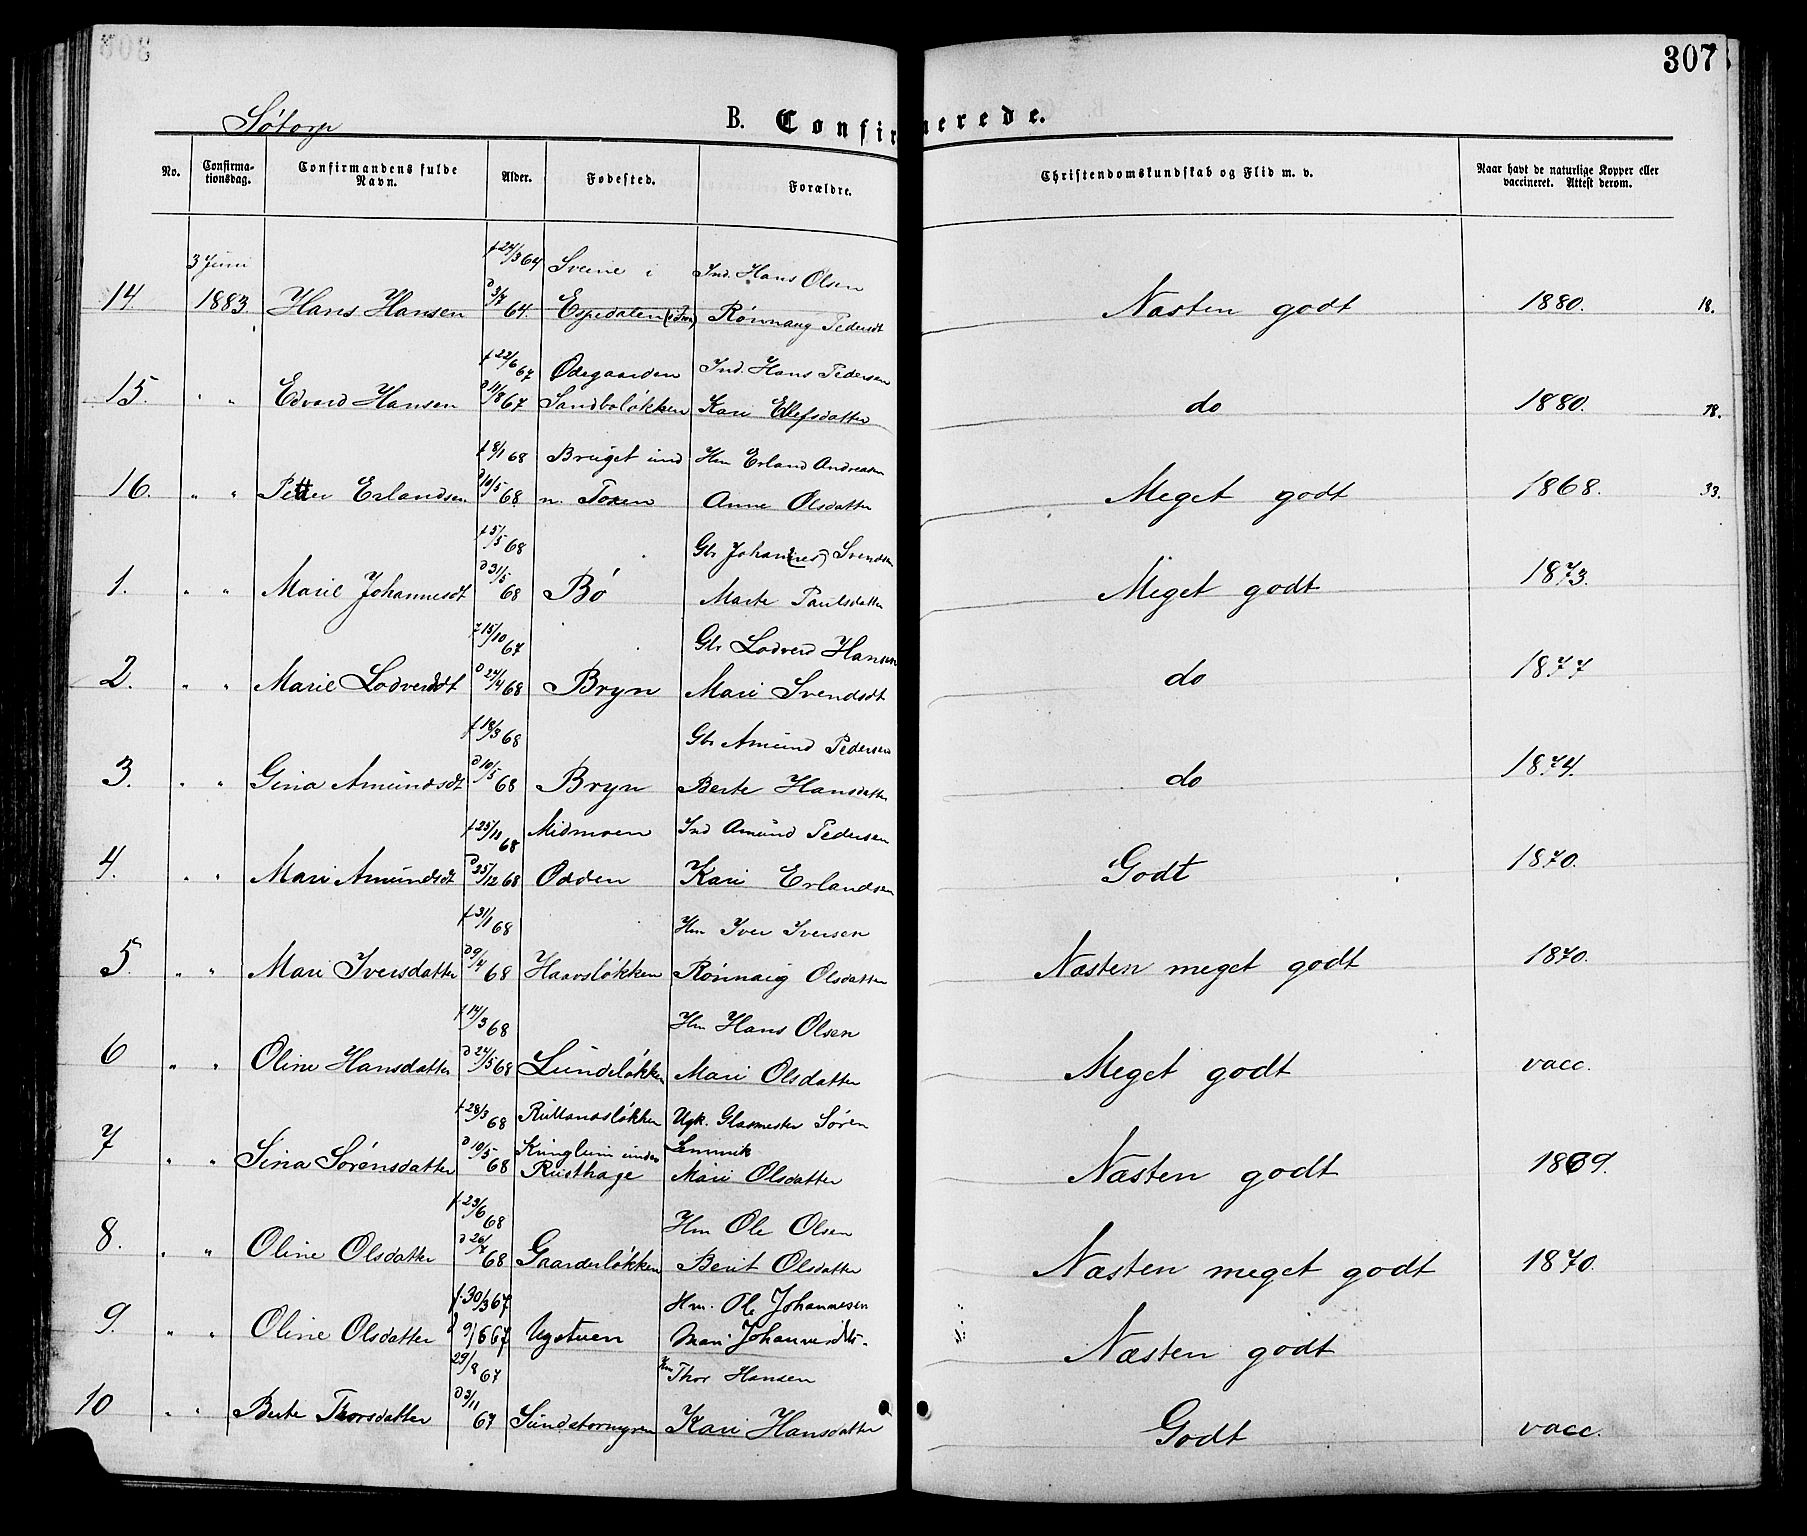 307
Sótorp
B. Confirmerede.
No.
Confirma-
tionsdag.
Confirmandens fulde
Navn.
Alder.
Fødested.
Forældre.
Christendomskundskab og Flid m. v.
Naar havt de naturlige Kopper eller
vaccineret. Attest derom.
3 Juni f 24/3 64 Sveine i Ind. Hans Olsen
14. 1883 Hans Hansen d 3/7 64. Espedalen Rónnaug Pedersdt Næsten godt 1880. 18.
f 22/6 67 Ødegaarden Ind. Hans Pedersen
15. " " Edvard Hansen d 11/8 67 Sandboløkken Kari Ellefsdatter do 1880. 18.
f 8/1 68 Bruget und Hm Erland Andreasen
16. " " Petter Erlandsen d 10/5 68 n. Toxen Anne Olsdatter Meget godt 1868. 33.
f 5/5 68 Gbr Johan(nes) Svendsen
1. " " Marie Johannesdt d 31/5 68 Bó Marte Paulsdatter Meget godt 1873.
f 15/10 67 Gbr Lodverd Hansen
2. " " Marie Lodverdsdt d 24/4 68 Bryn Mari Svendsdt do 1877
f 18/3 68 Gbr Amund Pedersen
3. " " Gina Amundsdt d 10/5 68 Bryn Berte Hansdatter do 1874.
f 25/11 68 Midmoen Ind Amund Pedersen
4. " " Mari Amundsdt d 25/12 68 Odden Kari Erlandsen Godt 1870.
f 31/1 68 Hm Iver Iversen
5. " " Mari Iversdatter d 9/4 68 Haavsløkken Rónnaug Olsdatter Næsten meget godt 1870.
f 14/3 68 Hm Hans Olsen
6 " " Oline Hansdatter d 24/5 68 Lundeløkken Mari Olsdatter Meget godt vacc.
f 28/3 68 Rullandsløkken Ugk. Glasmester Sóren
7 " " Sina Sórensdatter d 10/5 68 Kringlum under Lennvik
Rusthage Mari Olsdatter Næsten godt 1869.
f 23/6 68 Hm Ole Olsen
8. " " Oline Olsdatter d 26/7 68 Gaarderløkken Berit Olsdatter Næsten meget godt 1870.
f. 30/3 67 Hm. Ole Johannesen
9. " " Oline Olsdatter d 9/6 67 Nystuen Mari Johannesdtr. Næsten godt
29/8 67 Hm Thor Hansen
10 " " Berte Thorsdatter d 3/11 67 Sundstormyren Kari Hansdatter Godt vacc.